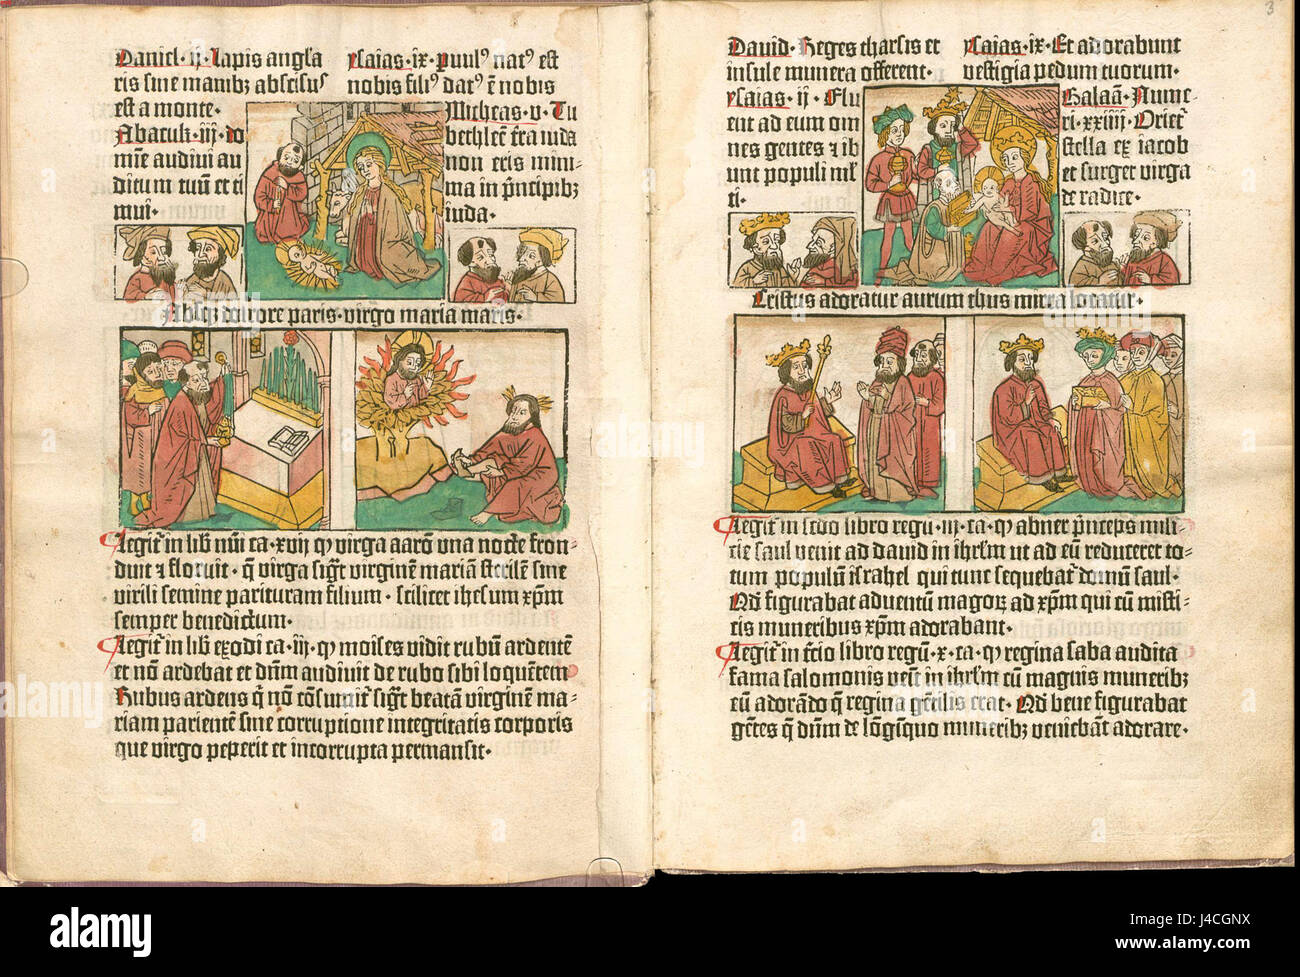 Daniel · ij · Lapis angla
ris sine manibꝫ abscisus
est a monte ·
Abacuk · iij · do
mīe audiui au
ditum tuū et ti
mui ·
ysaias · ix · Puulꝰ natꝰ est
nobis filiꝰ datꝰ ē nobis
Micheas · v · Tu
bethleē t̄ra iuda
non eris mini-
ma in p̄ncipibꝫ
iuda ·
Absqꝫ dolore paris · virgo maria maris ·
Legit᷑ in lib̄ nūi ca · xvij ꝙ virga aarō una nocte fron-
duit ⁊ floruit · q̄ virga sigt᷑ virginē mariā sterilē sine
virili semine parituram filium · scilicet ihesum xp̄m
semper benedictum ·
Legit᷑ in lib̄ exodi ca · iij · ꝙ moises vidit rubū ardentē
et nō ardebat et dn̄m audiuit de rubo sibi loquētem
Rubus ardens q̄ nō cōsumit᷑ sigt᷑ beatā virginē ma-
riam parientē sine corruptione integritatis corporis
que virgo peperit et incorrupta permansit ·
3
Dauid · Reges tharsis et
insule munera offerent ·
ysaias · ij · Flu
ent ad eum om
nes gentes ⁊ ib
unt populi ml̄
ti ·
ysaias · ix · Et adorabunt
vestigia pedum tuorum ·
Balaā · Nume-
ri · xxiiij · Oriet᷑
stella ex iacob
et surget virga
de radice ·
Cristus adoratur aurum thus mirra locatur ·
Legit᷑ in scdo libro regū · iij · ca · ꝙ abner p̄nceps mili-
cie saul venit ad dauid in ihrl̄m ut ad eū reduceret to-
tum populū israhel qui tunc sequebat᷑ domū saul ·
Qd̄ figurabat aduentū magoꝝ ad xp̄m qui eū misti-
cis muneribus xp̄m adorabant ·
Legit᷑ in t̄cio libro regū · x · ca · ꝙ regina saba audita
fama salomonis veīt in ihrl̄m cū magnis muneribꝫ
eū adorādo q̄ regina gētilis erat · Qd̄ bene figurabat
gētes q̄ dn̄m de lōgīquo muneribꝫ veniebāt adorare ·
alamy
alamy stock photo
a
alamy
Image ID: J4CGNX
www.alamy.com